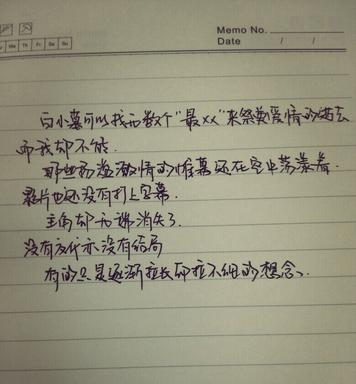 Memo No.
Date / /
Mo Tu We Th Fr Sa Su
白小墓可以找无数个“最xx”来祭奠爱情的逝去
而我却不能.
那些扬溢激情的帷幕还在空中荡漾着.
影片也还没有打上字幕.
主角却无端消失了.
没有交代亦没有结局
有的只是逐渐拉长却拉不细的想念、